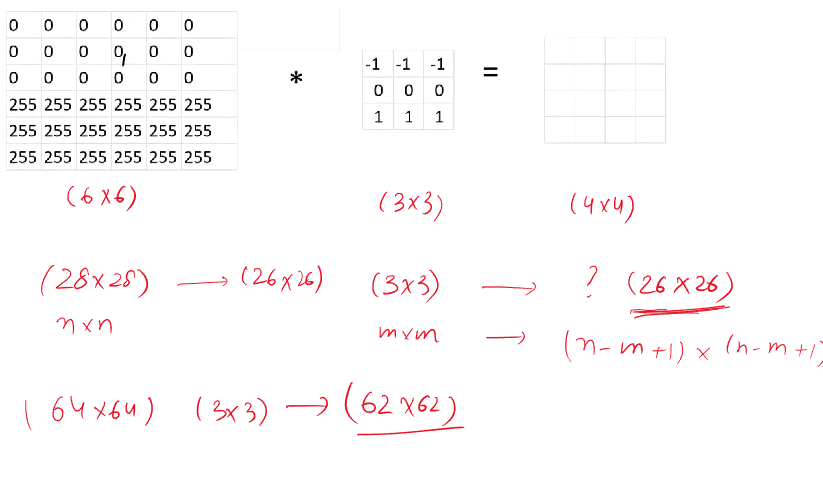 0 0 0 0 0 0
0 0 0 0 0 0
0 0 0 0 0 0
255 255 255 255 255 255
255 255 255 255 255 255
255 255 255 255 255 255
*
-1 -1 -1
0 0 0
1 1 1
=
(6×6) (3×3) (4×4)
(28×28) → (26×26) (3×3) → ? (26×26)
n×n m×m → (n-m+1) × (n-m+1)
(64×64) (3×3) → (62×62)